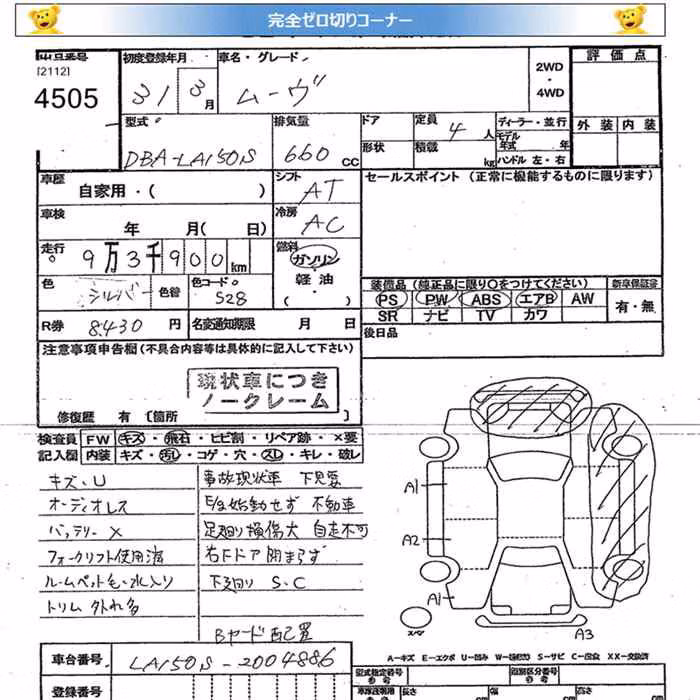 完全ゼロ切りコーナー
出品番号 初度登録年月 車名・グレード 2WD・4WD 評価点
[2112]
4505 31 3月 ムーヴ
外装 内装
型式 排気量 ドア 定員 4人 ディーラー・並行
モデル年式 年
DBA-LA150S 660cc 形状 積載 kg ハンドル 左・右
車歴 自家用・( ) シフト AT セールスポイント (正常に機能するものに限ります)
車検 年 月( 日) 冷房 AC
走行 9万3千900km 燃料 ガソリン・軽油・( )
色 シルバー 色替 色コードNo. S28
装備品 (純正品に限り○をつけてください) 新車保証書
PS PW ABS エアB AW 有・無
SR ナビ TV カワ
R券 8430円 名変通知期限 月 日 後日品
注意事項申告欄 (不具合内容等は具体的に記入して下さい)
現状車につき
ノークレーム
修復歴 有 〔箇所
検査員記入欄 FW キズ・飛石・ヒビ割・リペア跡・×要
内装 キズ・汚れ・コゲ・穴・スレ・キレ・破レ
キズ、U 事故現状車 下見要
オーディオレス E/g始動せず 不動車
バッテリー× 足廻り損傷大 自走不可
フォークリフト使用済 右Fドア閉まらず
ルームペット毛・水入り 下廻り S、C
トリム外れ多
Bヤード配置
A1
A2
A1
スペア
A3
A-キズ E-エクボ U-凹み W-補修跡 S-サビ C-腐食 XX-交換済
車台番号 LA150S-2004886
型式指定番号 類別区分番号
登録番号 長さ 幅 高さ